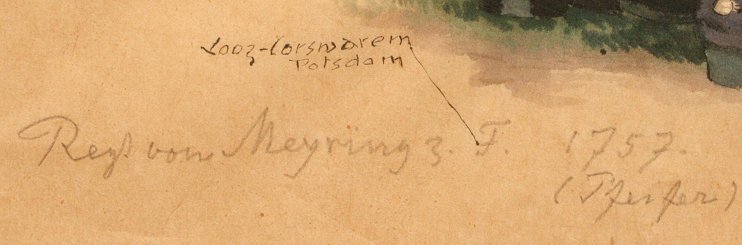 Looz-Corswarem
Potsdam
Regt von Meyring z. F. 1757.
(Pfeifer)